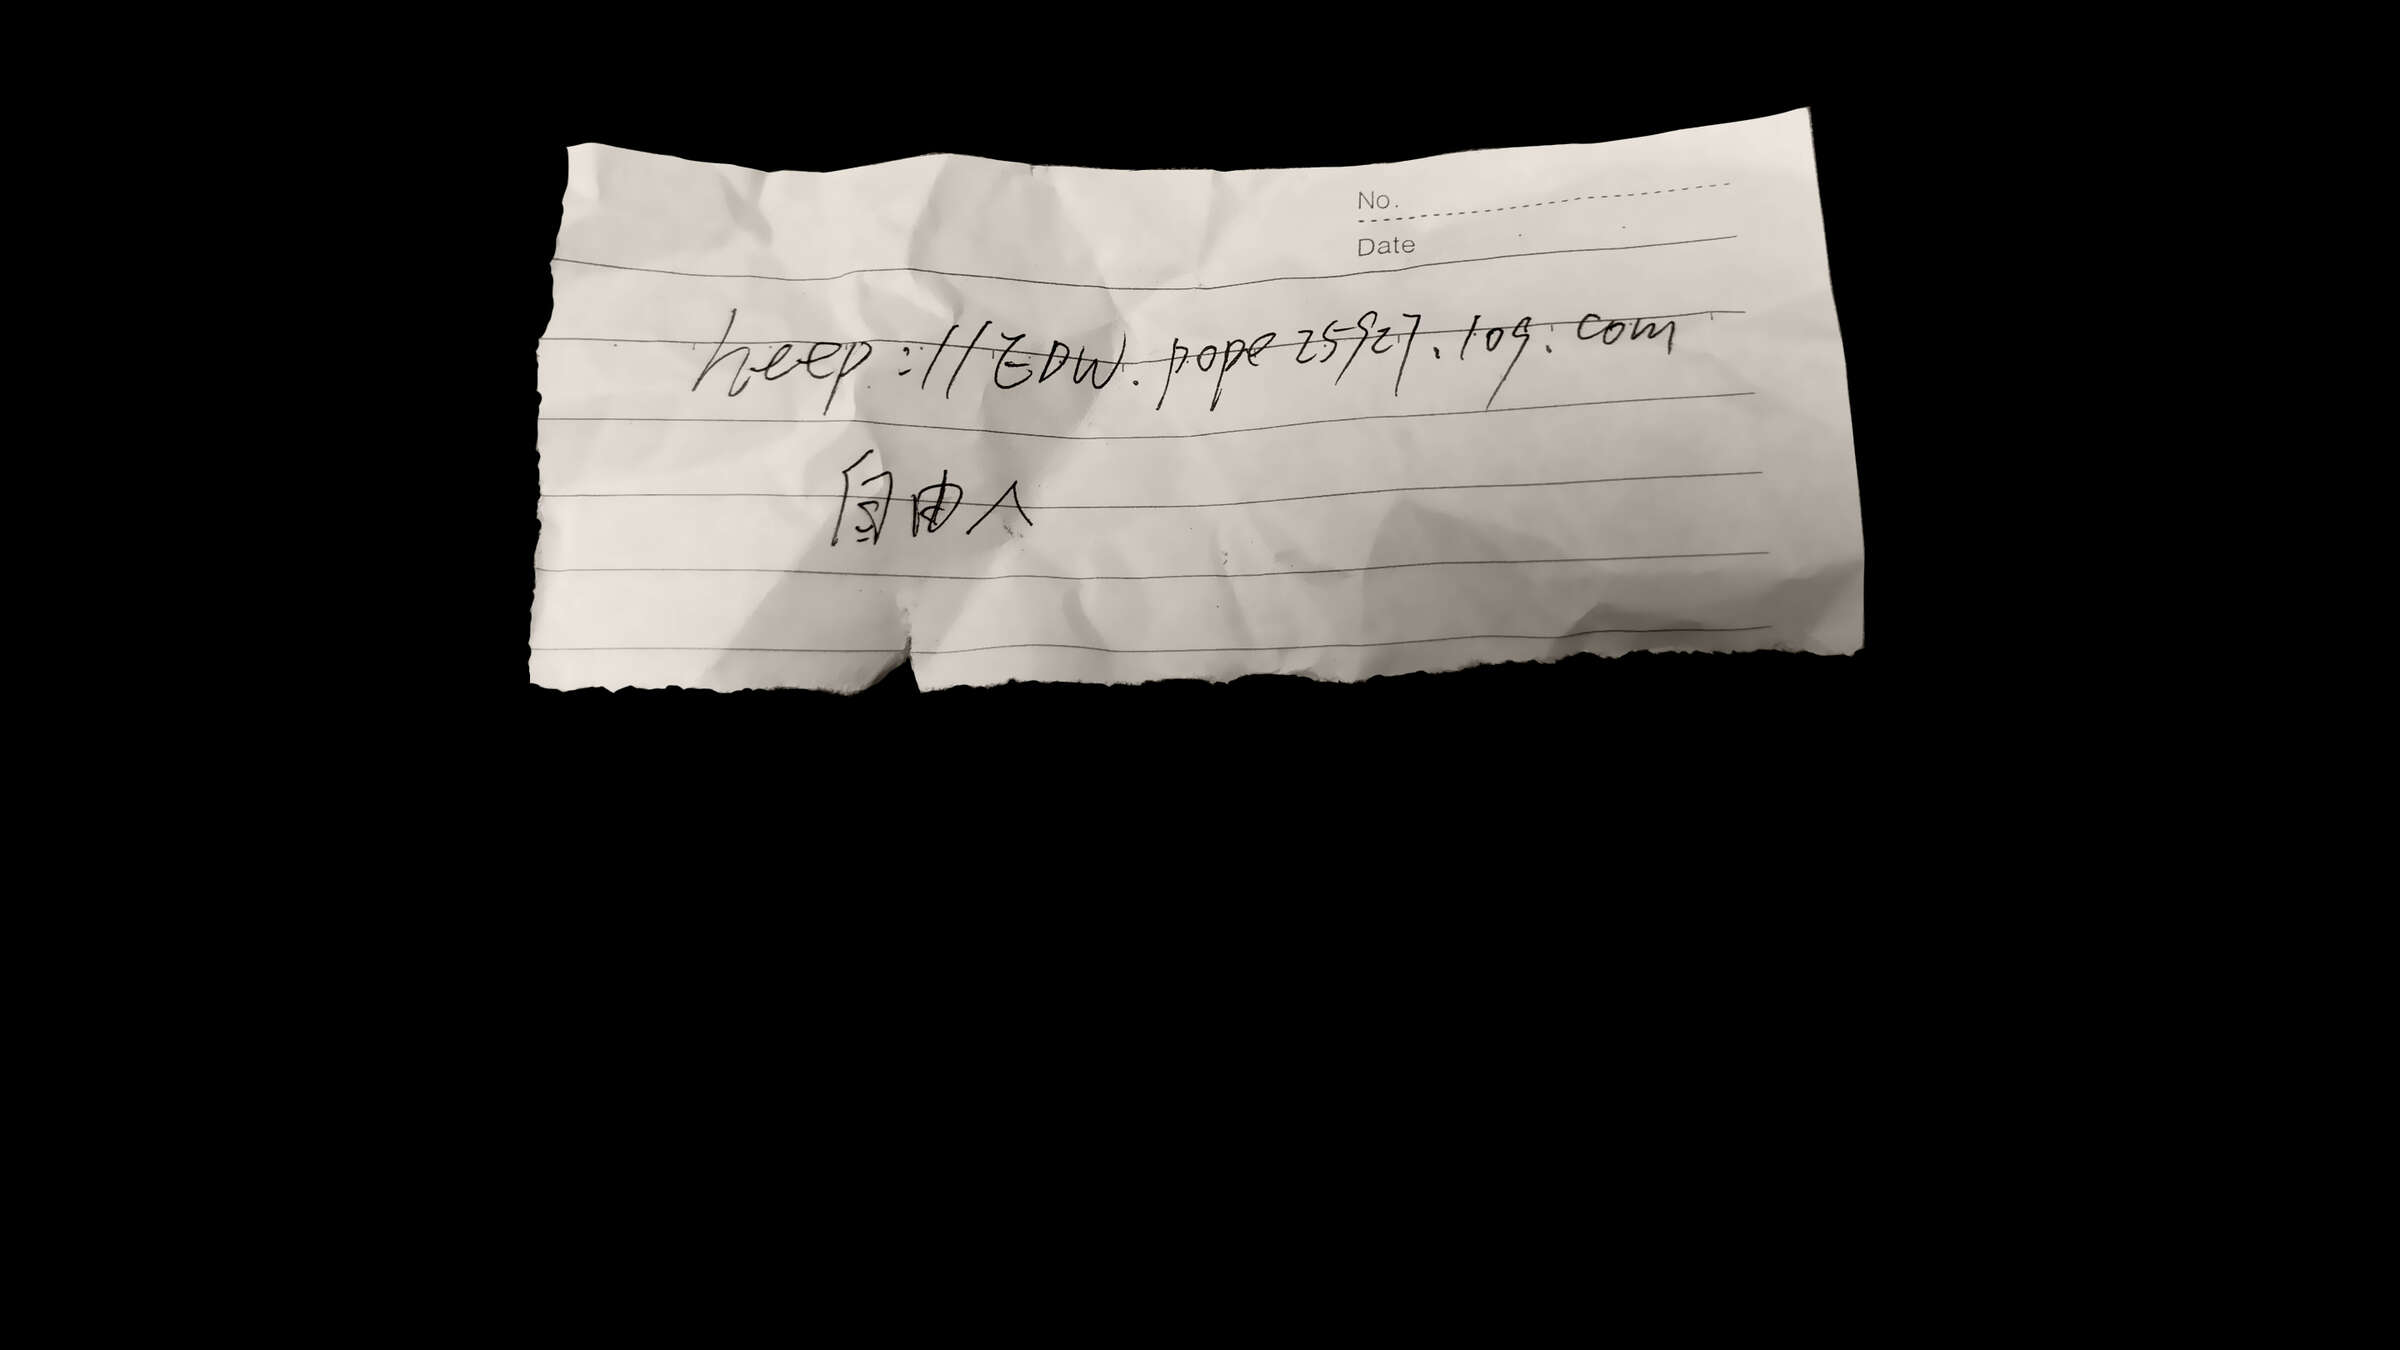 No.
Date
heep://EDW.pope25927.log.com
自由人